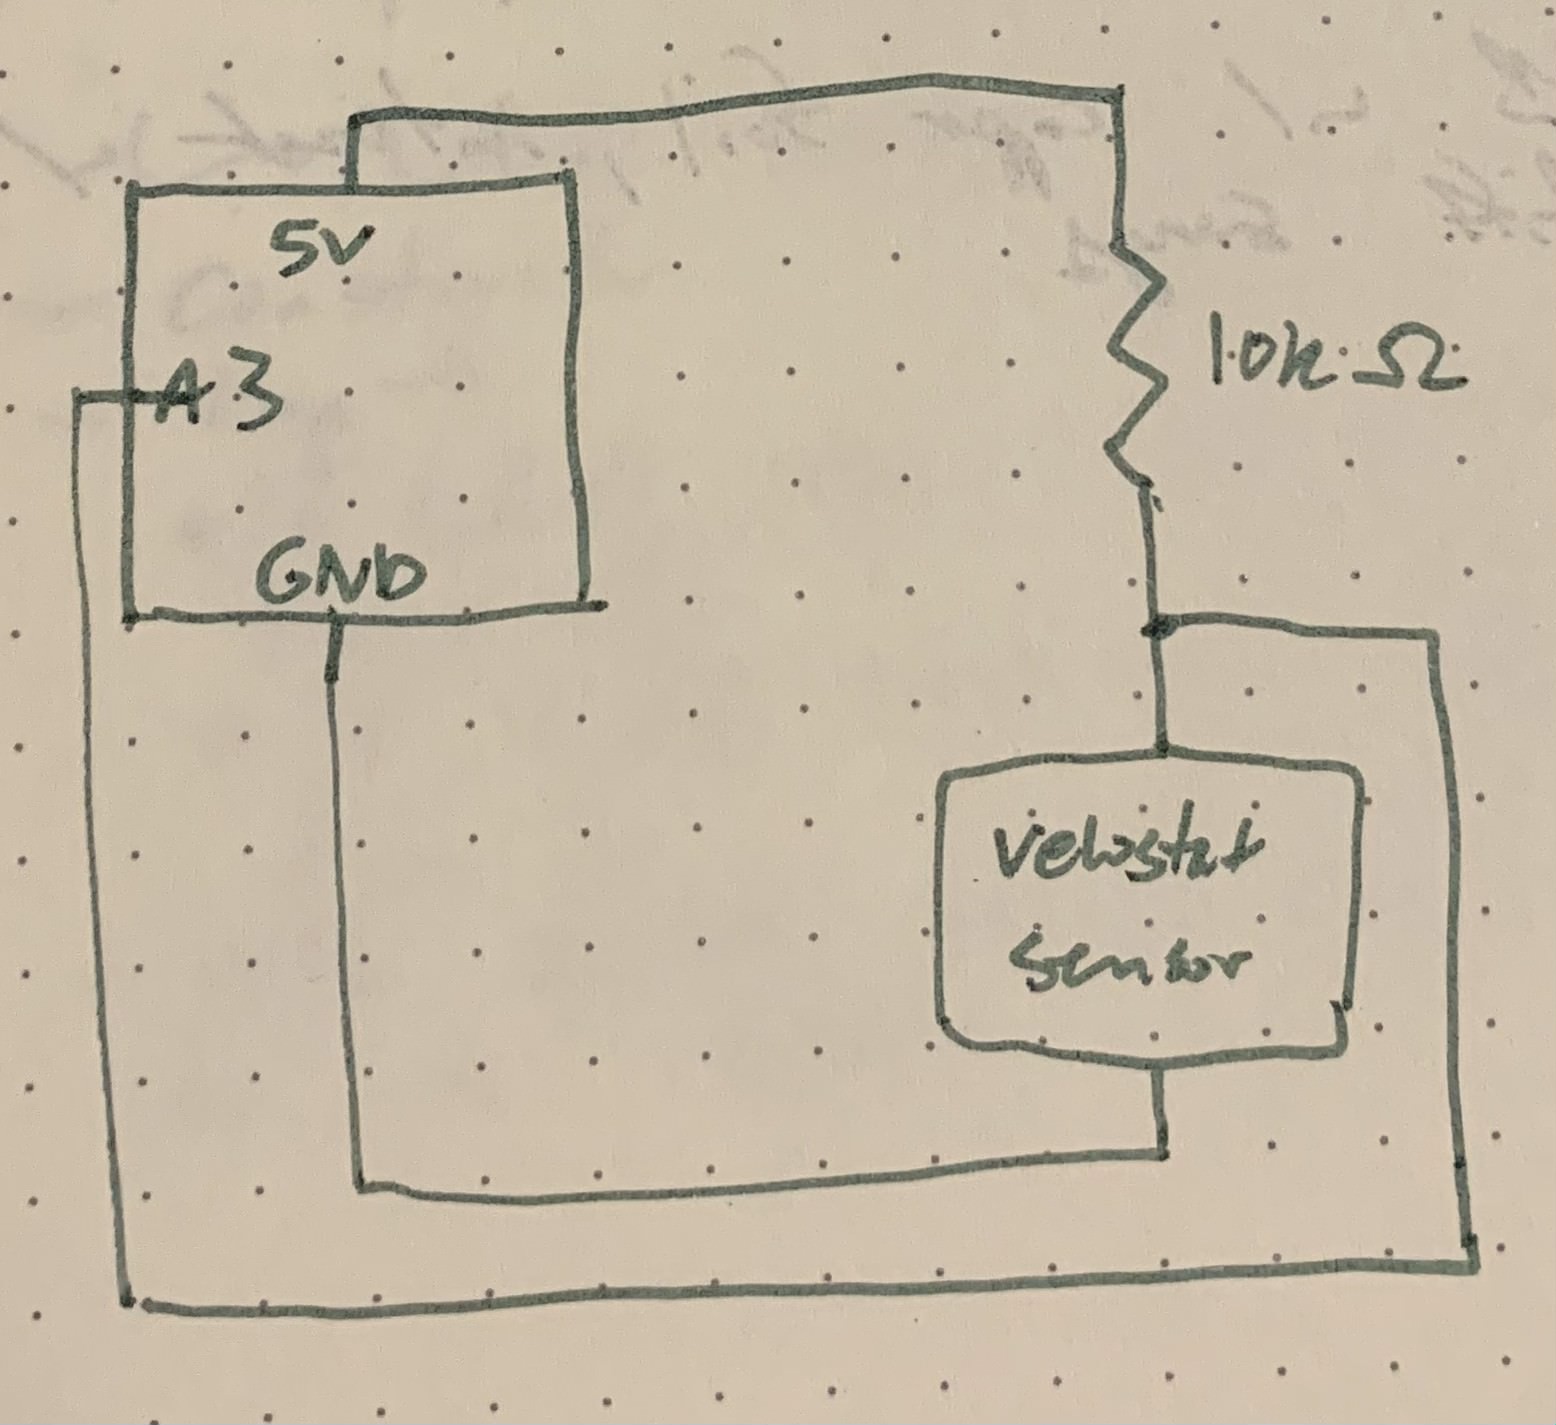 5V
A3
GND
10k Ω
Velostat
sensor